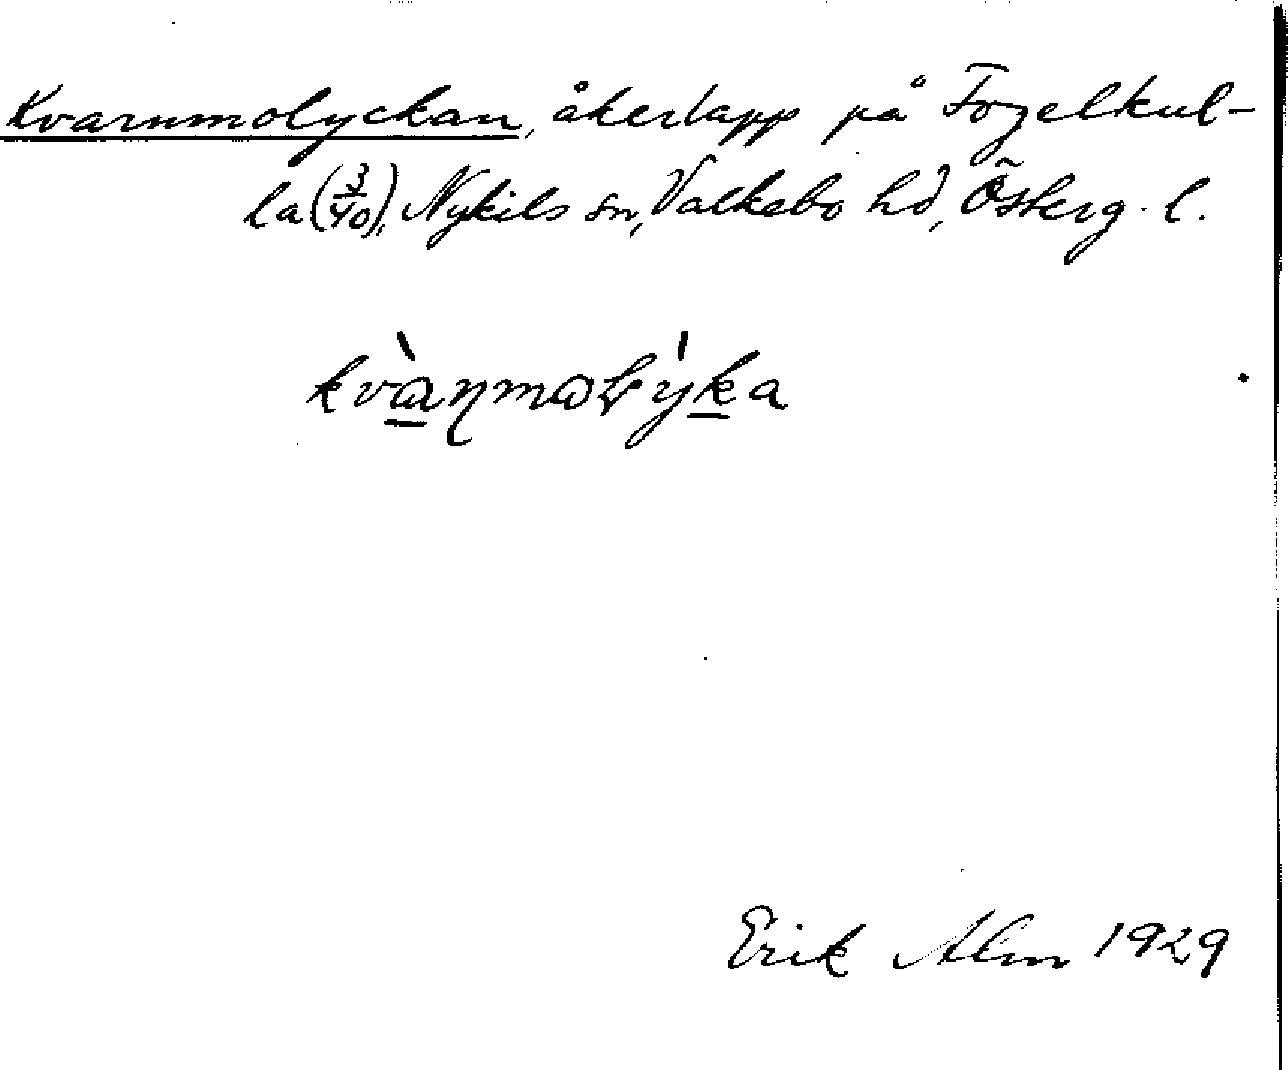 Kvarnmolyckan, åkerlapp på Fogelkul-
la (3/40), Nykils sn, Valkebo hd, Österg. l.
kvànmaɷlýka
Erik Alm 1929